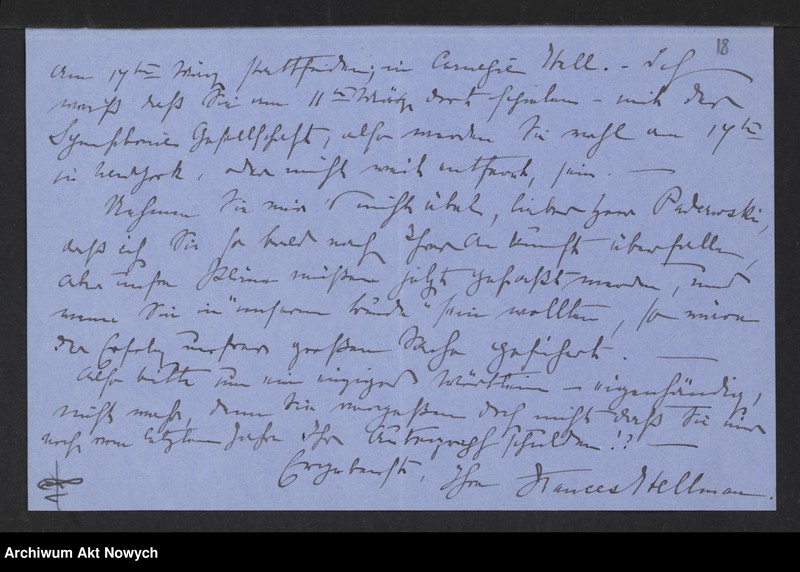 18
am 17ten März stattfinden, in Carnegie Hall. – Ich
weiß daß Sie am 11ten März dort spielen – mit der
Symphonie Gesellschaft, also werden Sie wohl am 17ten
in New York, oder nicht weit entfernt, sein. —
Nehmen Sie mir's nicht übel, lieber Herr Paderewski,
daß ich Sie so bald nach Ihrer Ankunft überfalle,
aber unsre Pläne müßen jetzt gefaßt werden, und
wenn Sie in "unserem Bunde" sein wollten, so wäre
der Erfolg unsrer großen Sache gesichert. —
Also bitte um ein einziges Wörtlein – eigenhändig,
nicht mehr, denn Sie vergaßen doch nicht daß Sie mir
noch vom letzten Jahr Ihr Autograph schulden!? —
Ergebenst, Ihre Frances Hellman.
Archiwum Akt Nowych